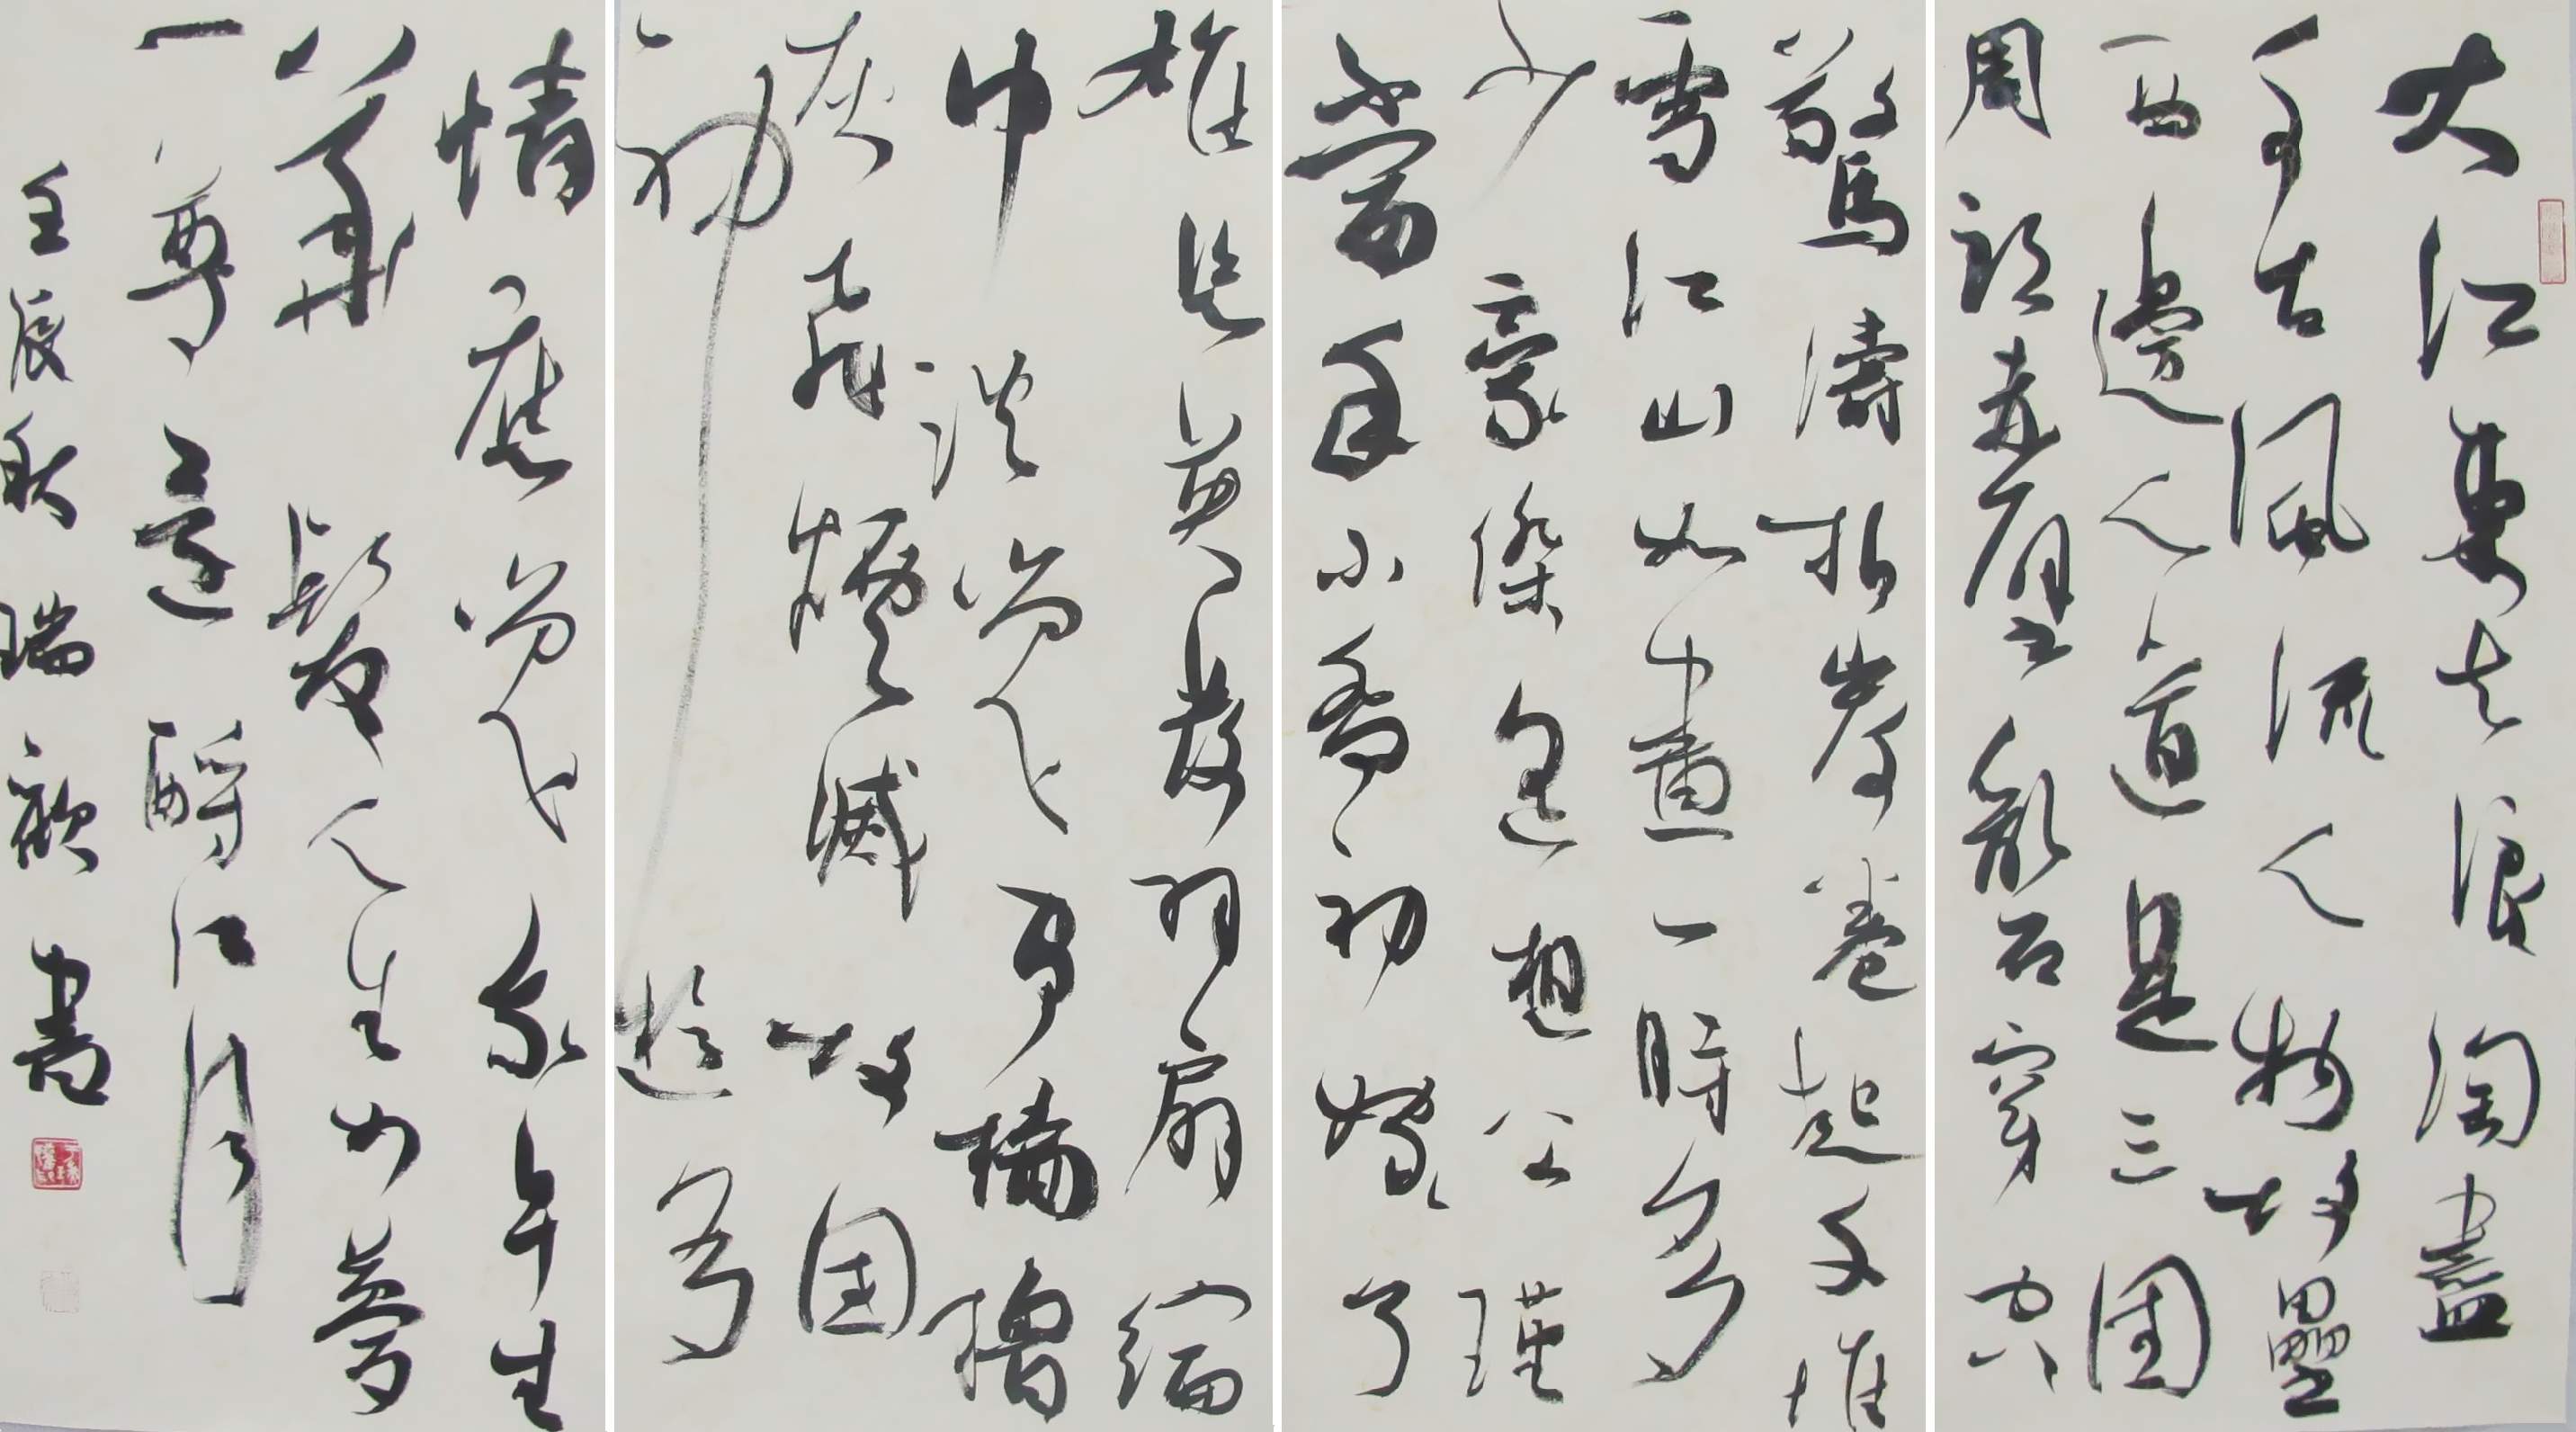 大江東去浪淘盡
千古風流人物故壘
西邊人道是三國
周郎赤壁亂石穿空
驚濤拍岸卷起千堆
雪江山如畫一時多
少豪傑遙想公瑾
當年小喬初嫁了
雄姿英發羽扇綸
巾談笑間檣櫓
灰飛煙滅故國
神遊多
情應笑我早生
華髮人生如夢
一尊還酹江月
壬辰秋瑞歆書